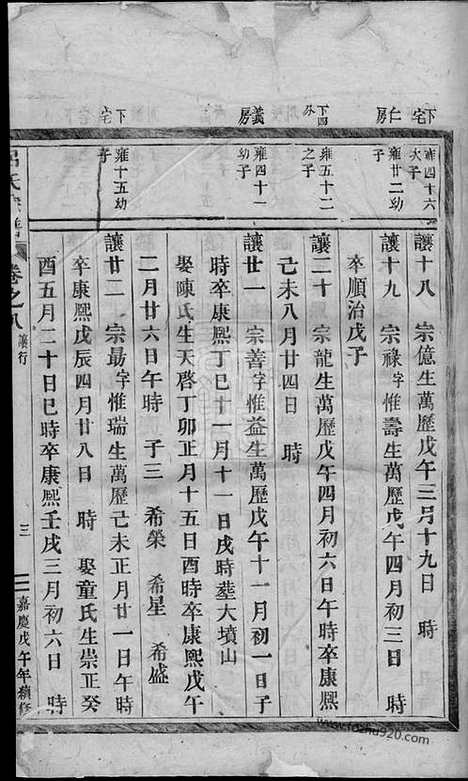 下宅 雍四十六
次子
讓十八 宗億生萬歷戊午三月十九日 時
仁房 雍廿二幼
子
讓十九 宗祿字惟壽生萬歷戊午四月初三日 時
卒順治戊子
下四外 雍五十二
之子
讓二十 宗龍生萬歷戊午四月初六日午時卒康熙
己未八月廿四日 時
義房 雍四十一
幼子
讓廿一 宗善字惟益生萬歷戊午十一月初一日子
時卒康熙丁巳十一月十一日戌時塟大墳山
娶陳氏生天啓丁卯正月十五日酉時卒康熙戊午
二月廿六日午時 子三 希榮 希星 希盛
下宅 雍十五幼
子
讓廿二 宗勗字惟瑞生萬歷己未正月廿一日午時
卒康熙戊辰四月廿八日 時 娶童氏生崇正癸
酉五月二十日巳時卒康熙壬戌三月初六日 時
呂氏宗譜 卷之八 讓行 三 嘉慶戊午年續修
www.fozhu920.com